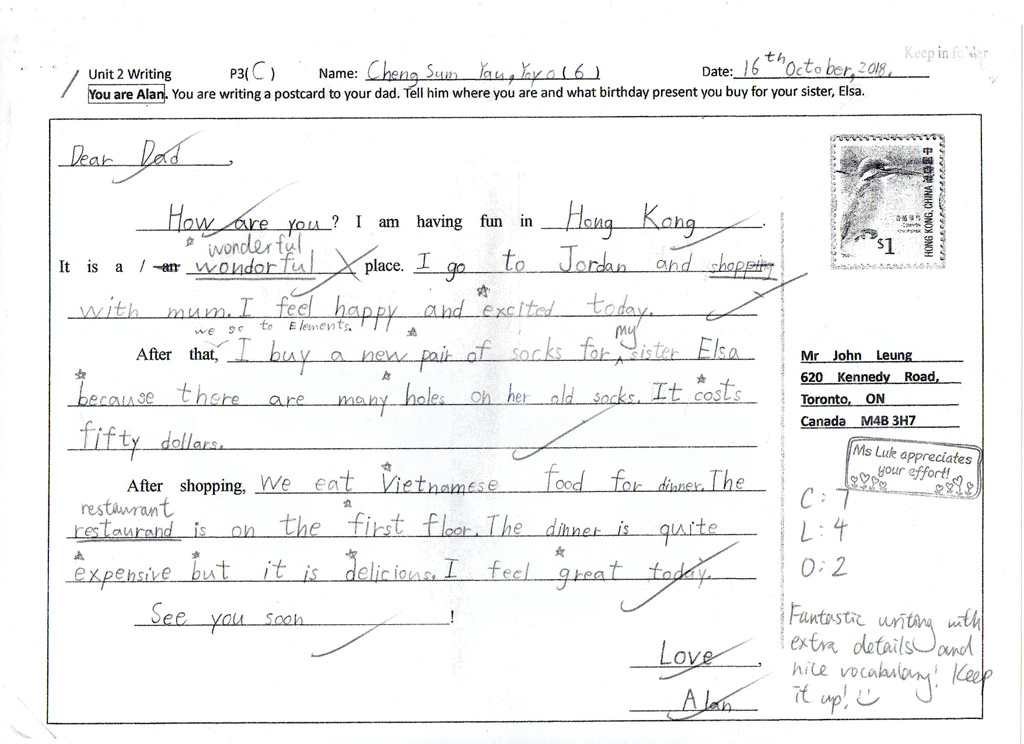 Keep in folder
Unit 2 Writing P3( C ) Name: Cheng Sum Yau, Yoyo (6) Date: 16th October, 2018.
You are Alan. You are writing a postcard to your dad. Tell him where you are and what birthday present you buy for your sister, Elsa.
Dear Dad,
How are you? I am having fun in Hong Kong.
wonderful
It is a / an wondorful place. I go to Jordan and shopping
with mum. I feel happy and excited today.
we go to Elements.
my
After that, I buy a new pair of socks for sister Elsa
because there are many holes on her old socks. It costs
fifty dollars.
After shopping, We eat Vietnamese food for dinner. The
restaurant
restaurand is on the first floor. The dinner is quite
expensive but it is delicious. I feel great today.
See you soon!
Love,
Alan
$1
HONG KONG, CHINA 中國香港
Mr John Leung
620 Kennedy Road,
Toronto, ON
Canada M4B 3H7
Ms Luk appreciates
your effort!
C: 7
L: 4
O: 2
Fantastic writing with
extra details and
nice vocabulary! Keep
it up!